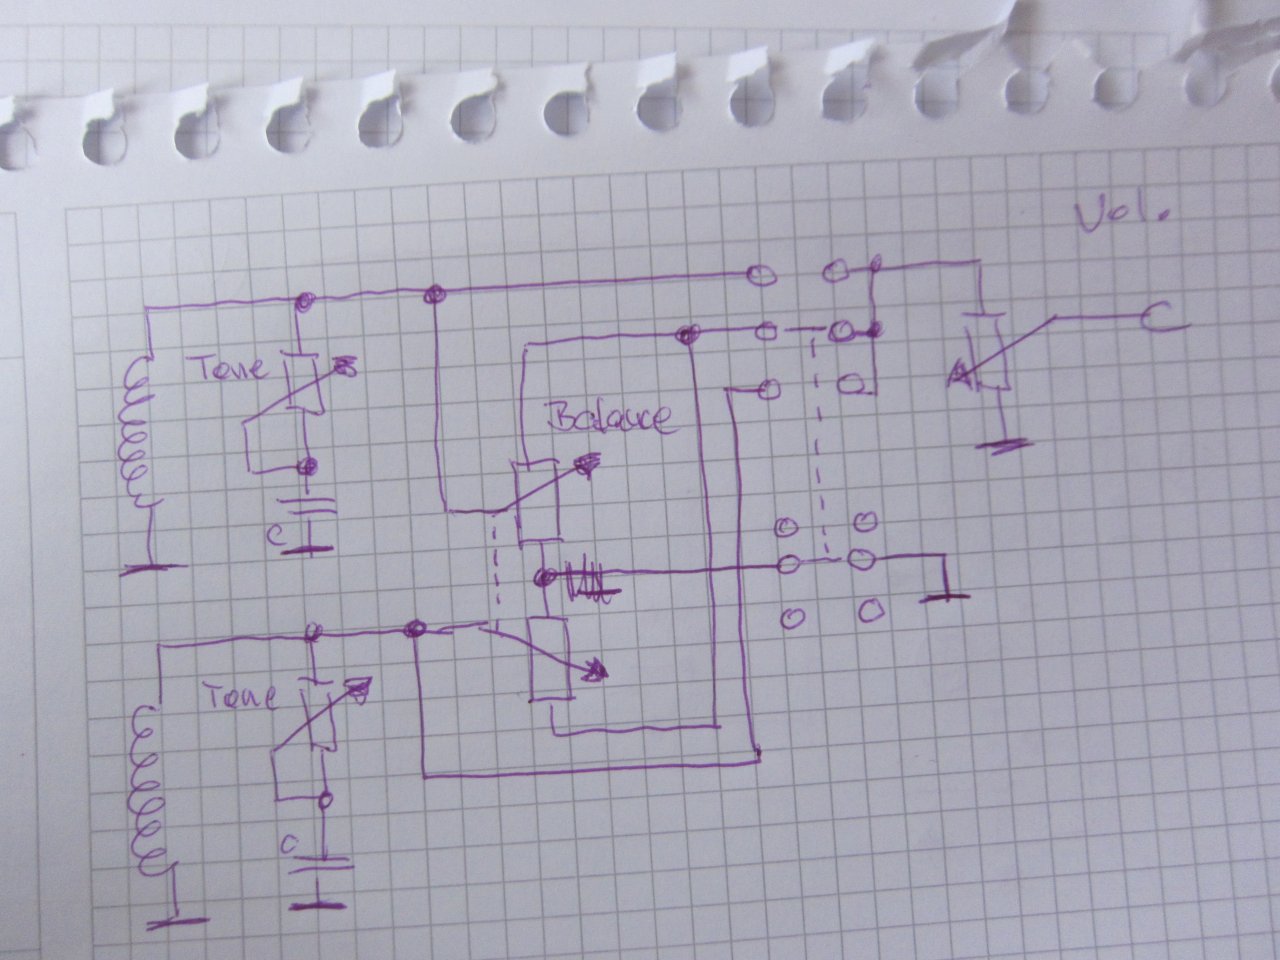 Vol.
Tone
Balance
C
Tone
C